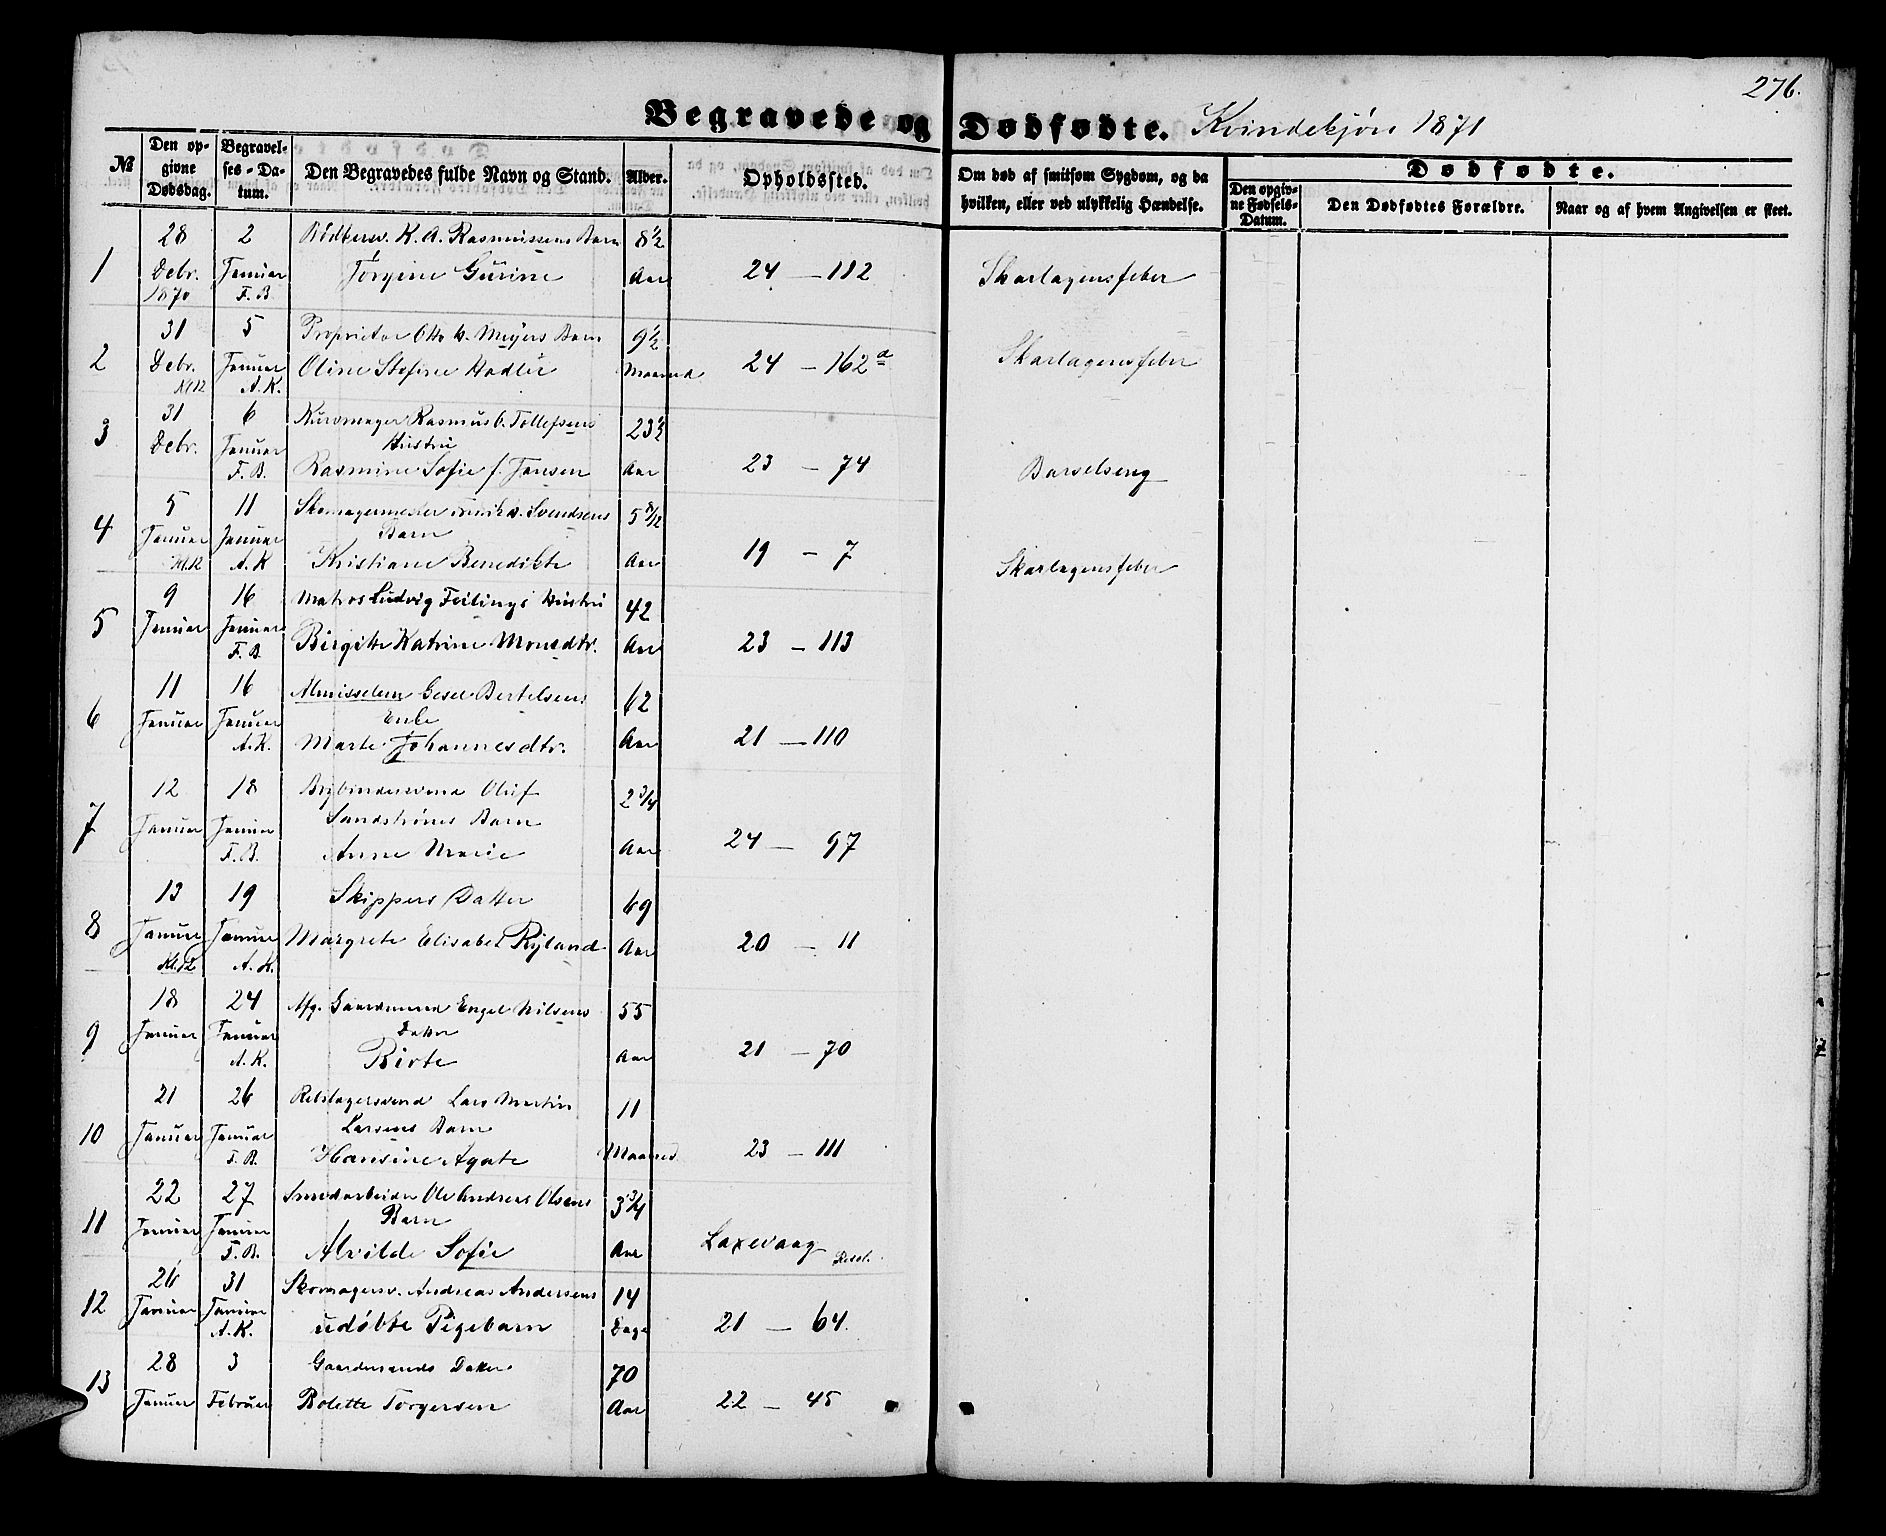 276.
Begravede og Dødfødte. Kvindekjøn 1871
№
Den opgivne Dødsdag.
Begravelses-Datum.
Den Begravedes fulde Navn og Stand.
Alder.
Opholdssted.
Om død af smitsom Sygdom, og da hvilken, eller ved ulykkelig Hændelse.
Dødfødte.
Den opgivne Fødsels-Datum.
Den Dødfødtes Forældre.
Naar og af hvem Angivelsen er skeet.
28 2 Bødkersv. K. A. Rasmussens Barn 8½
1 Debr. Januar Jørgine Gurine Aar 24 — 112 Skarlagensfeber
1870 F. B.
31 5 Proprietær Otto Meyers Barn 9½
2 Debr. Januar Oline Stofine Maaned 24 — 162a Skarlagensfeber
Kl 12 A. K.
31 6 Kurvmager Rasmus Tollefsens 23½
3 Debr. Januar Hustru
F. B. Rasmine Sofie f. Jansen Aar 23 — 74 Barselseng
5 11 Skomagermester Svendsens 5 8/12
4 Januar Januar Barn
Kl.12 A. K Kristiane Benedikte Aar 19 — 7 Skarlagensfeber
9 16 Matros Ludvig Feilings Hustru 42
5 Januar Januar Birgitte Katrine Monsdtr. Aar 23 — 113
F. B.
11 16 Almisselem Gesel Bertelsens 62
6 Januar Januar Enke
A. K. Marte Johannesdtr. Aar 21 — 110
12 18 Olüf 2 3/4
7 Januar Januar Sandstrøms Barn
F. B. Anne Marie Aar 24 — 97
13 19 Skippers Datter 69
8 Januar Januar Margrete Elisabet Ryland Aar 20 — 11
Kl.12 A. K.
18 24 Afg. Gaardmand Engel Nilsens 55
9 Januar Januar Datter
A. K. Birte Aar 21 — 70
21 26 Rebslagersvend Lars Martin 11
10 Januar Januar Larsens Barn
F. B. Hansine Agate Maaned 23 — 111
22 27 Ole Andreas Olsens 3 3/4
11 Januar Januar Barn
F. B. Alvilde Sofie Aar Laxevaag
26 31 Skomagersv. Andreas Andersens 14
12 Januar Januar udøbte Pigebarn Dage 21 — 64.
A. K.
28 3 Gaardmands Datter 70
13 Januar Februar Bolette Torgersen Aar 22 — 45